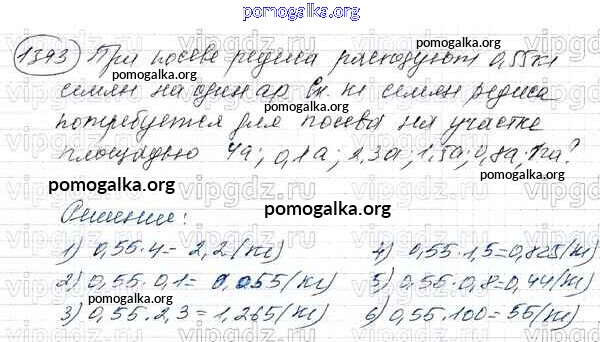 pomogalka.org
1393 При посеве редиса расходуют 0,55кг
семян на один ар. Ск. кг семян редиса
потребуется для посева на участке
площадью 4а; 0,1а; 2,3а; 1,5а; 0,8а; 1га?
pomogalka.org pomogalka.org
Решение:
1) 0,55·4= 2,2 (кг) 4) 0,55·1,5=0,825 (кг)
2) 0,55·0,1= 0,055 (кг) 5) 0,55·0,8=0,44 (кг)
3) 0,55·2,3=1,265 (кг) 6) 0,55·100=55 (кг)
pomogalka.org pomogalka.org